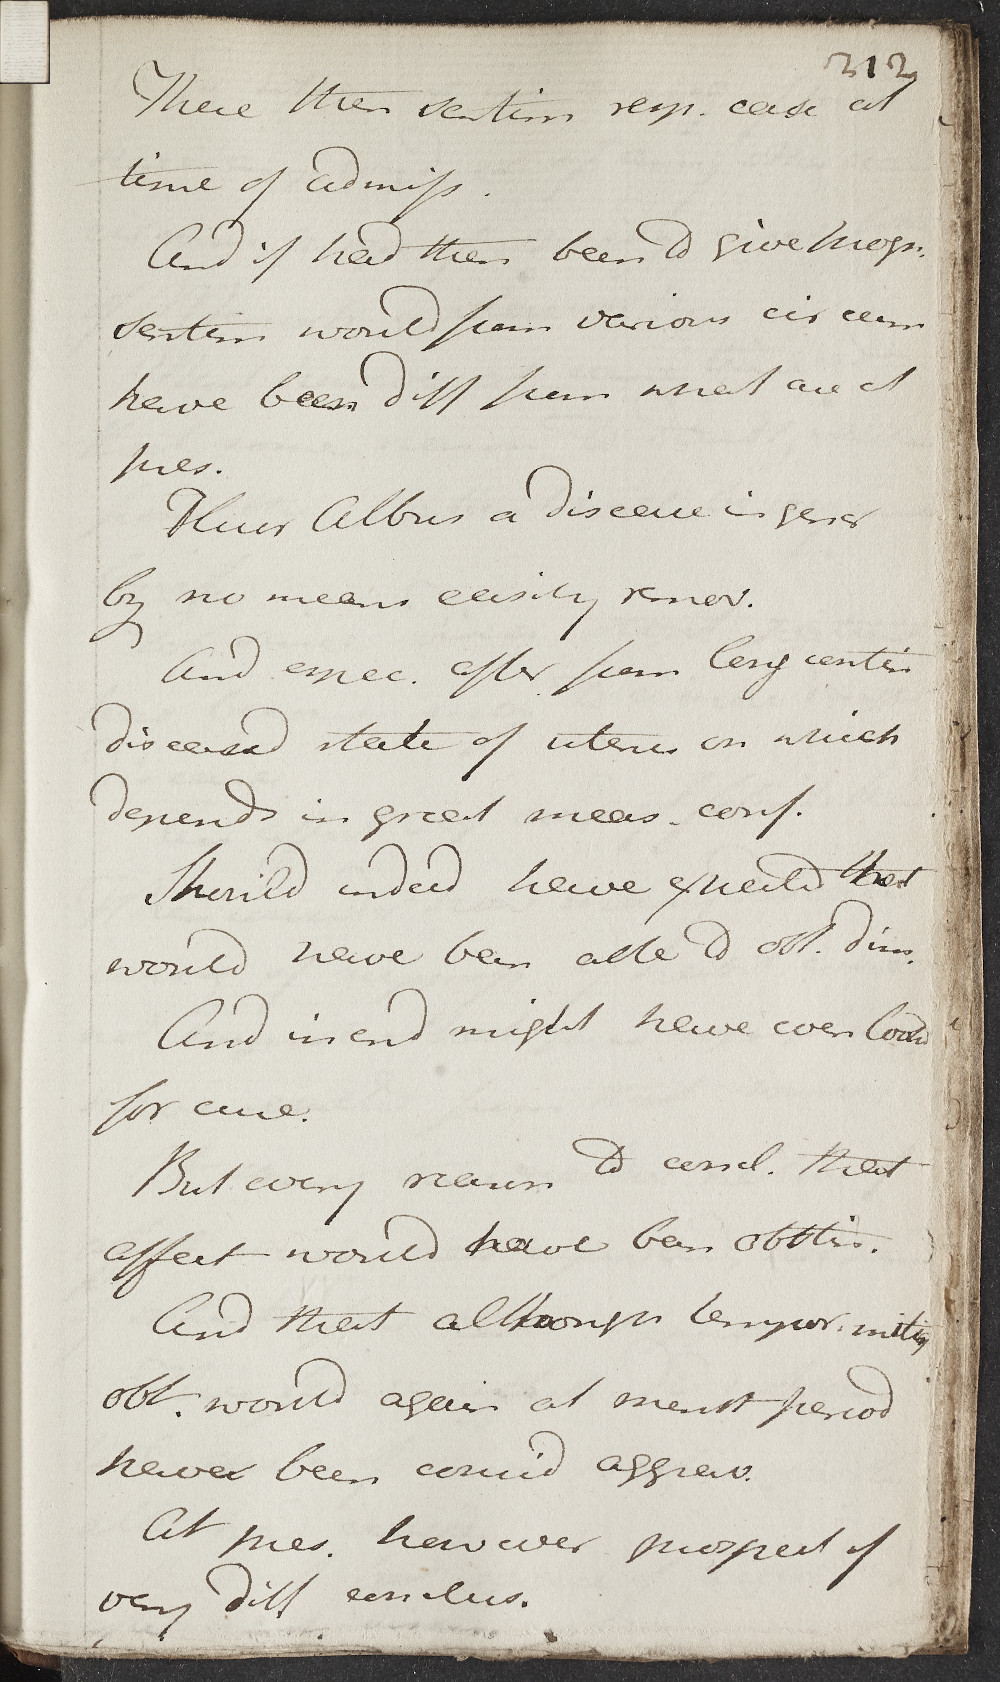 312
These then sentim resp. case at
time of admiss.
And if had then been to give progn.
sentim would from various circum
have been diff from what are at
pres.
Fluor Albus a disease in gener
by no means easily remov.
And espec. after from long contin
diseased state of uterus on which
depends in great meas. conf.
Should indeed have expected that
would have been able to obt. dim.
And in end might have even look'd
for cure.
But every reason to concl. that
effect would have been obtain.
And that although tempor. mitig
obt. would again at menst period
have been consid aggrav.
At pres. however prospect of
very diff conclus.